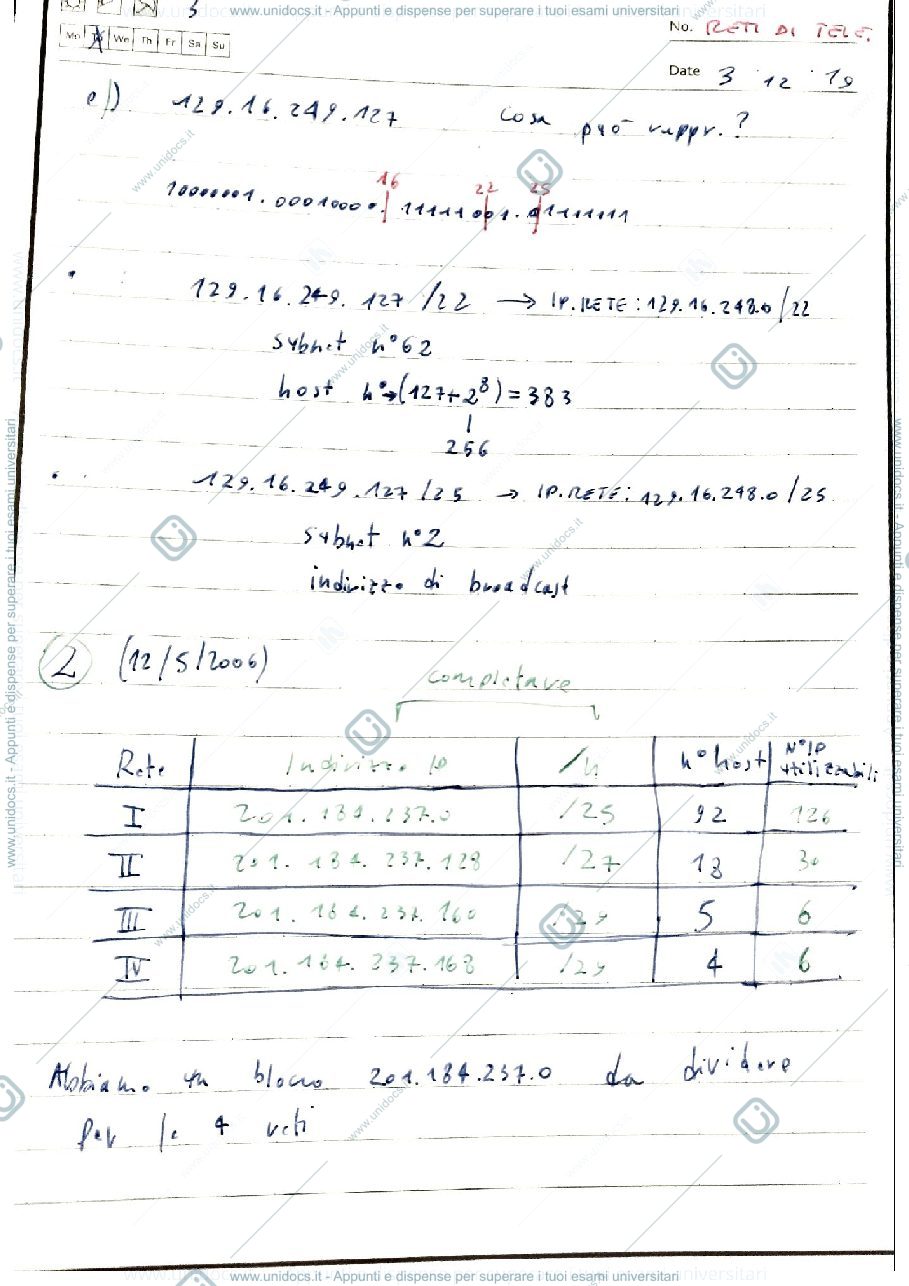 www.unidocs.it - Appunti e dispense per superare i tuoi esami universitari
No. RETI DI TELE.
Mo Tu We Th Fr Sa Su
Date 3 12 19
e)) 129.16.249.127 Cosa può rappr.?
16 22 25
10000001.00010000.11111001.01111111
129.16.249.127 /22 → IP.RETE: 129.16.248.0/22
subnet n°62
host n°→(127+2⁸)=383
256
129.16.249.127 /25 → IP.RETE: 129.16.248.0/25
subnet n°2
indirizzo di broadcast
2 (12/5/2006)
completare
Rete Indirizzo IP /n n° host N° IP utilizzabili
I 201.184.237.0 /25 92 126
II 201.184.237.128 /27 13 30
III 201.184.237.160 /29 5 6
IV 201.184.237.168 /29 4 6
Abbiamo un blocco 201.184.237.0 da dividere
per le 4 reti
www.unidocs.it - Appunti e dispense per superare i tuoi esami universitari